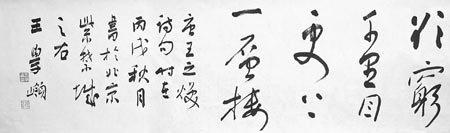 欲窮
千里目
更上
一層樓
唐王之渙
詩句時在
丙戌秋月
書於北京
紫禁城
之右
王學嶺